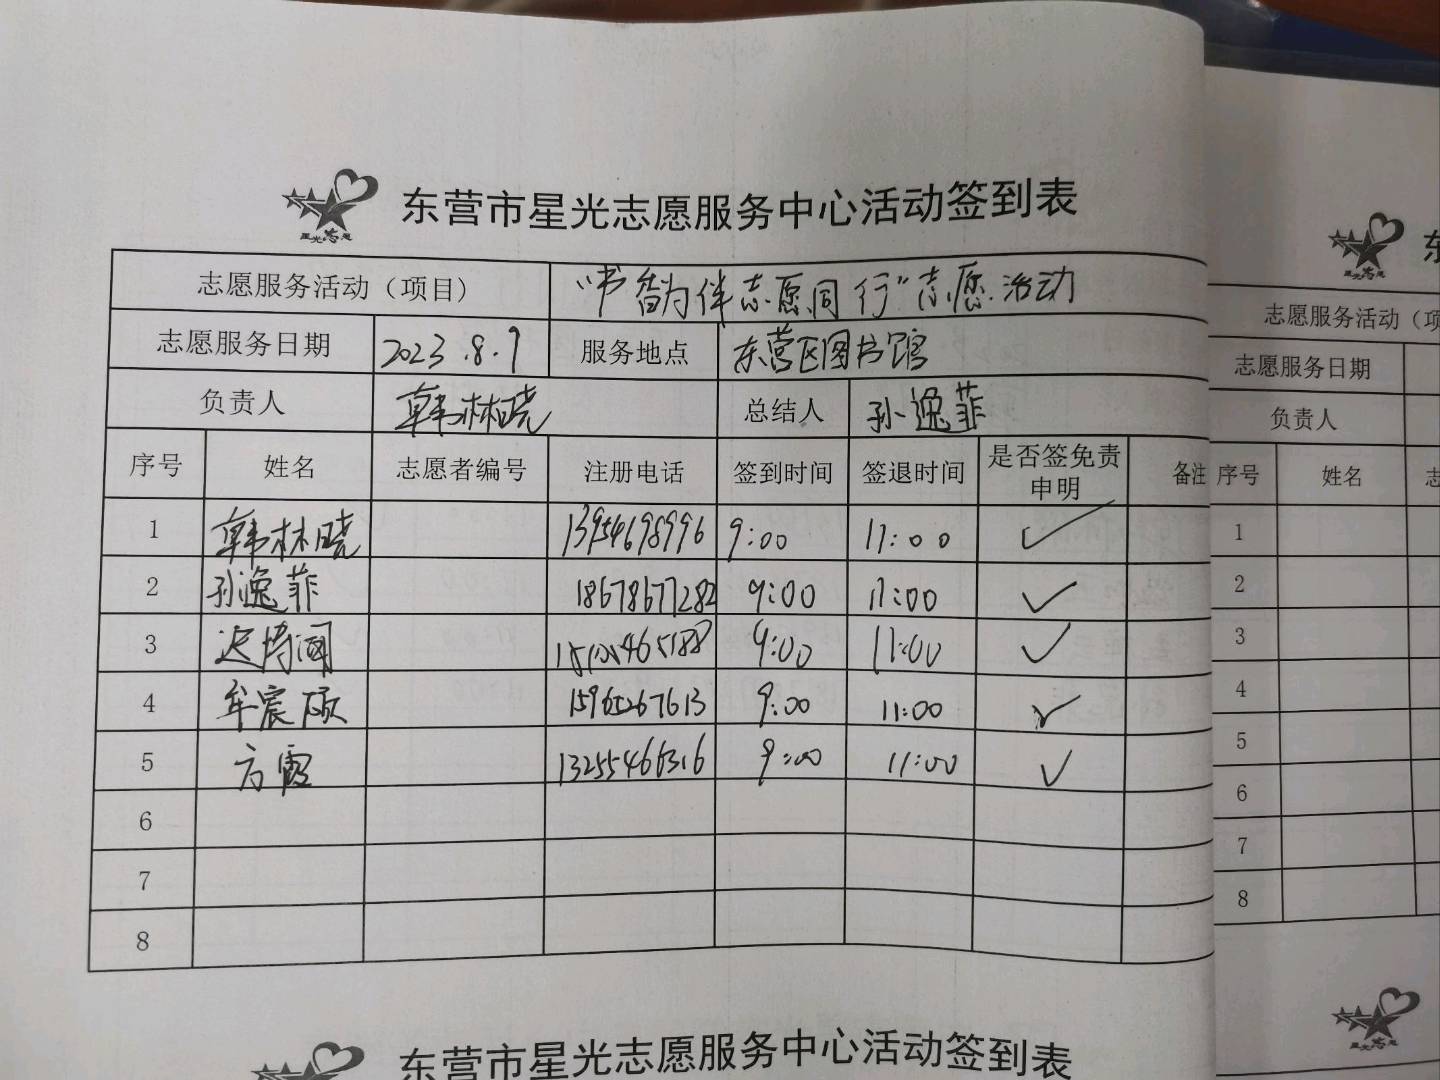 东营市星光志愿服务中心活动签到表
星光志愿
志愿服务活动（项目） “书香为伴志愿同行”志愿活动
志愿服务日期 2023.8.9 服务地点 东营区图书馆
负责人 韩林晓 总结人 孙逸菲
序号 姓名 志愿者编号 注册电话 签到时间 签退时间 是否签免责申明 备注
1 韩林晓 13954698996 9:00 11:00 ✓
2 孙逸菲 18678677282 9:00 11:00 ✓
3 迟 15105465188 9:00 11:00 ✓
4 牟宸硕 15965267613 9:00 11:00 ✓
5 方霞 13255466316 9:00 11:00 ✓
6
7
8
东营市星光志愿服务中心活动签到表
东
星光志愿
志愿服务活动（项
志愿服务日期
负责人
序号 姓名 志
1
2
3
4
5
6
7
8
星光志愿